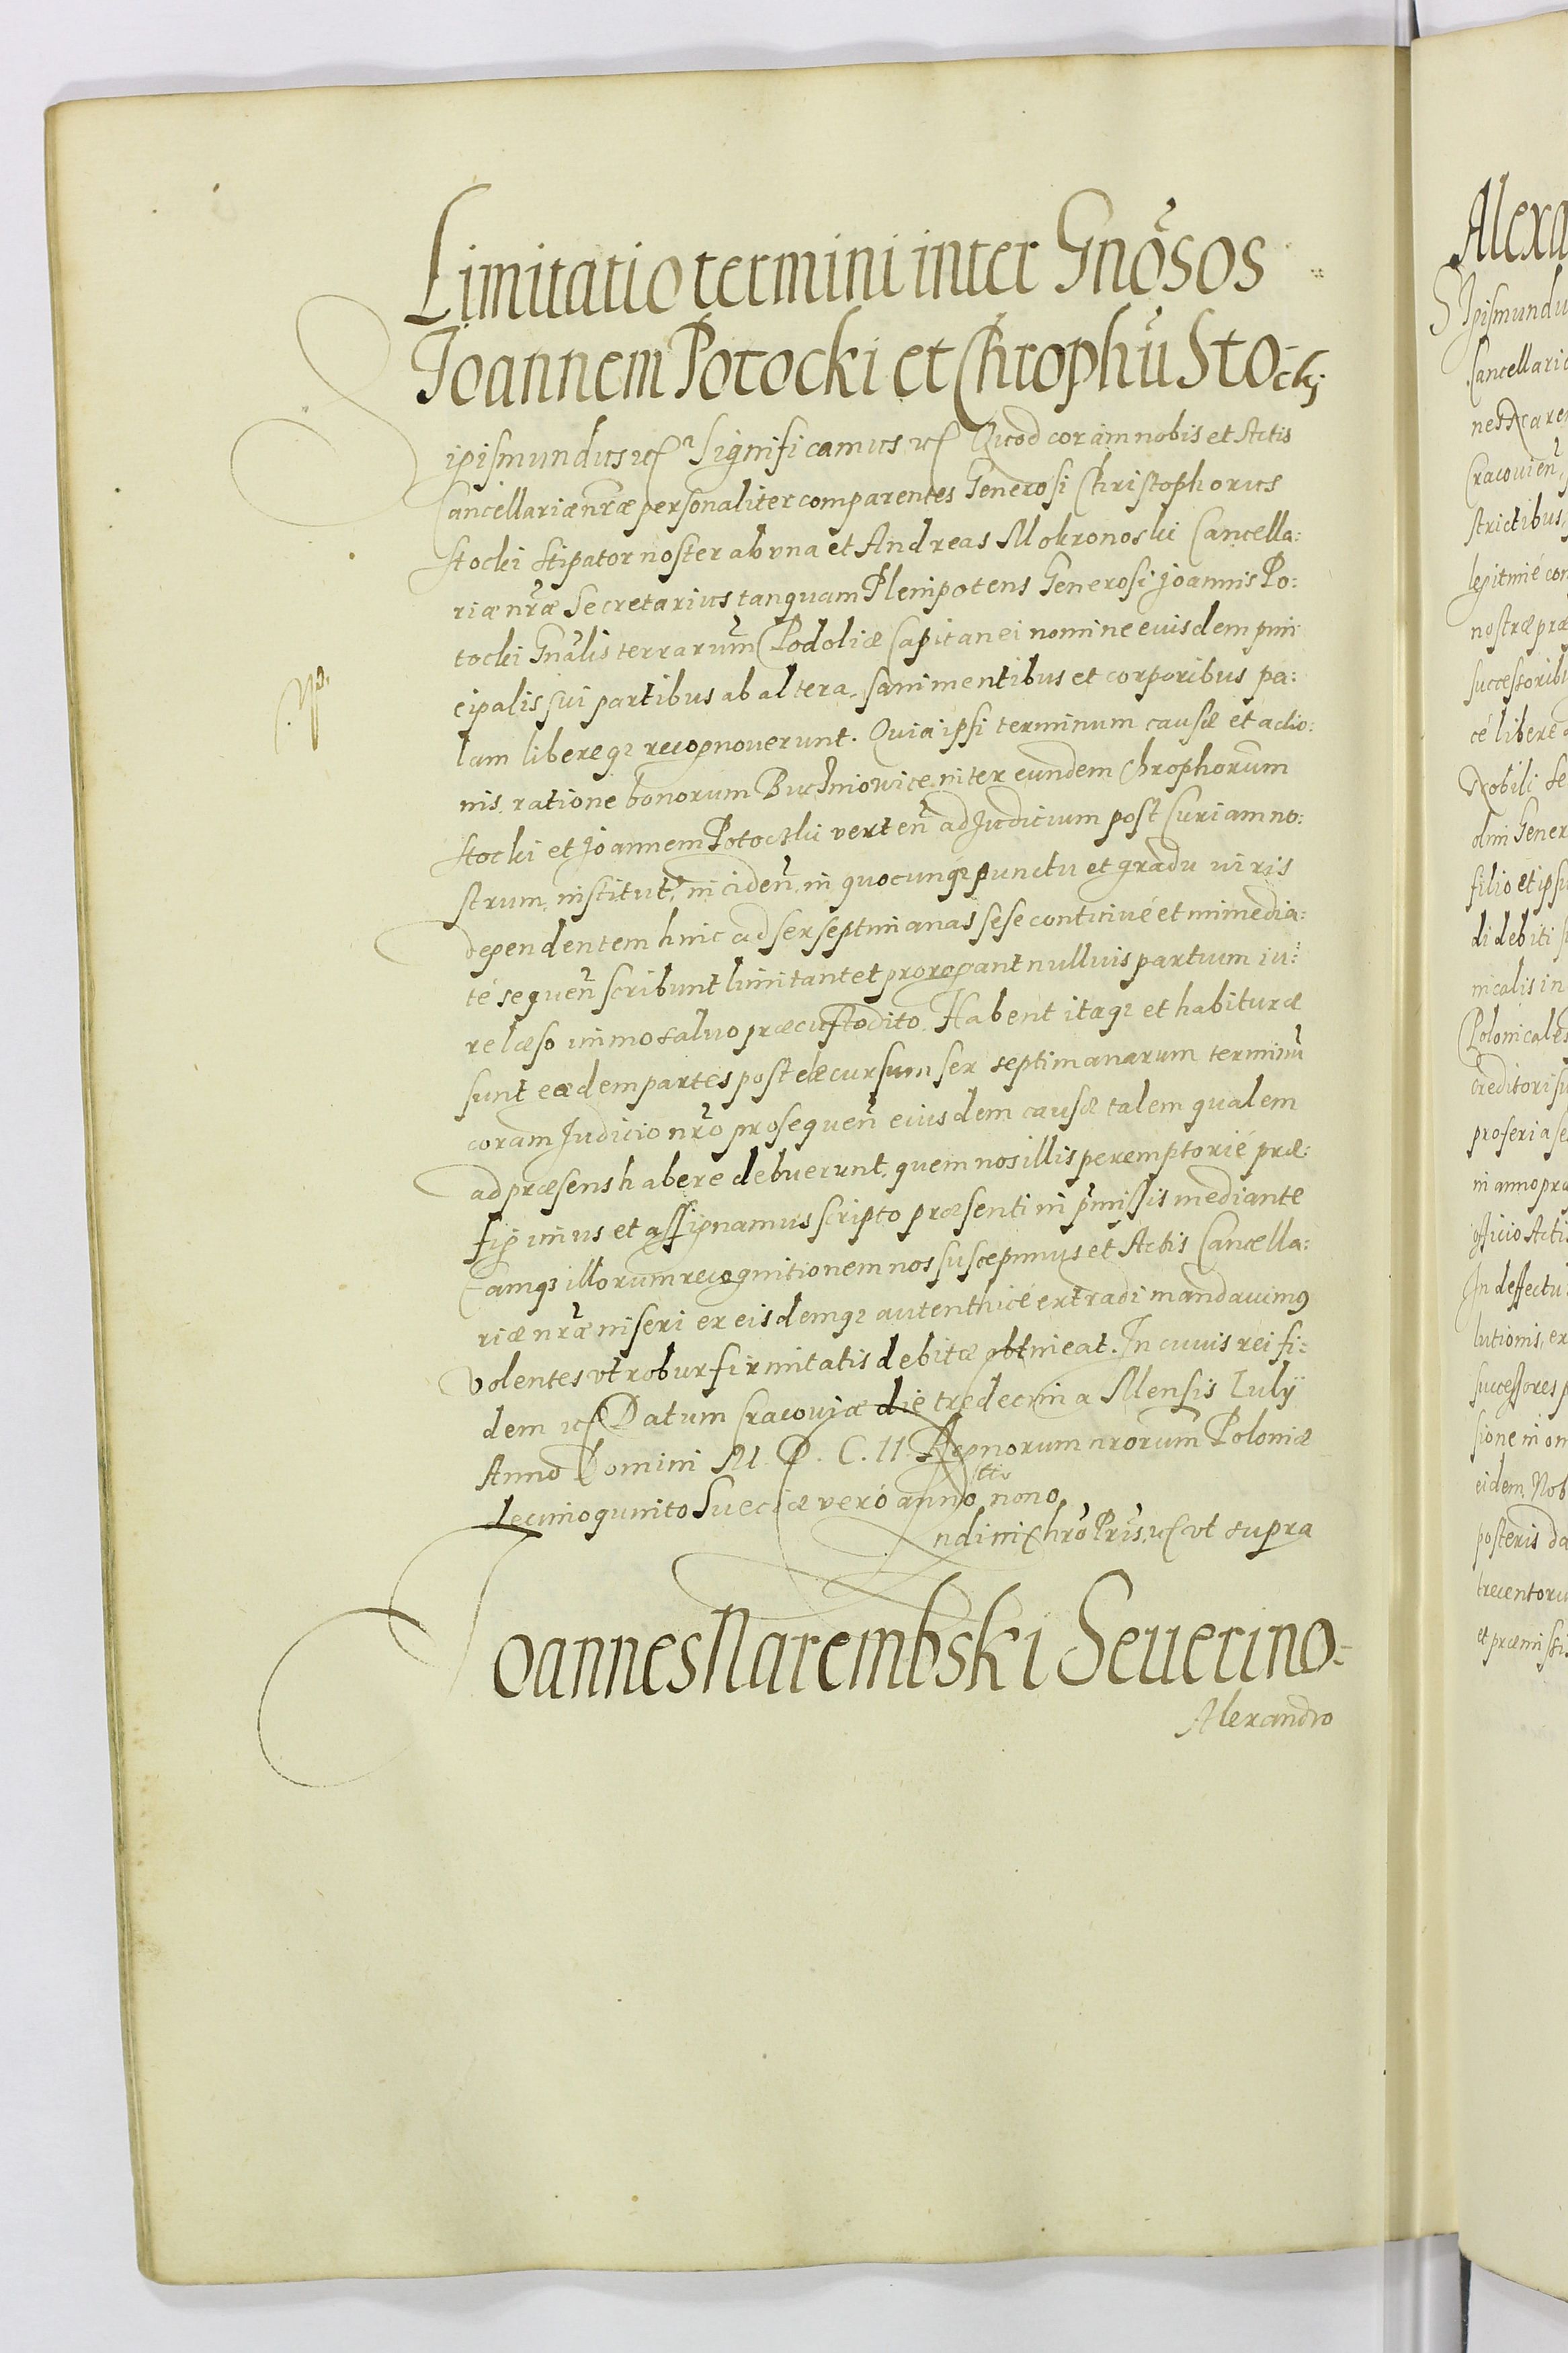 Limitatio termini inter Gnosos
Joannem Potocki et Chrophũ Stocky
Sigismundus etc Significamus etc Quod coram nobis et Actis
Cancellariæ nræ personaliter comparentes Generosi Christophorus
Stocki Stipator noster ab vna et Andreas Mokronoski Cancella:
riæ nræ Secretarius tanquam Plenipotens Generosi Joannis Po:
tocki Gnalis terrarum Podoliæ Capitanei nomine euisdem prin
cipalis sui partibus ab altera, sani mentibus et corporibus pa:
lam libereqz recognouerunt. Quia ipsi terminum causæ et actio:
nis, ratione bonorum inter eundem Chrophorum
Stocki et Joannem Potocki verten ad Judicium post Curiam no:
strum, institut, inciden, in quocunqz punctu et gradu iuris
dependentem hinc ad sex septimanas sese continué et immedia:
té sequen scribunt limitant et prorogant nullius partium iu:
re læso immo saluo præcustodito. Habent itaqz et habituræ
sunt eædem partes post decursum sex septimanarum terminũ
coram Judicio nro prosequen eiusdem causæ talem qualem
ad præsens habere debuerunt, quem nos illis peremptorié præ:
figimus et assignamus scripto præsenti in pmissis mediante
Eamqz illorum recognitionem nos suscepimus et Actis Cancella:
riæ nræ inseri ex eisdemqz autenthicé extradi mandauimus
volentes vt robur firmitatis debitæ obtineat. In cuius rei fi:
dem etc Datum Cracouiæ die tredecima Mensis Iulÿ
Anno Domini M. D. C. II. Regnorum nrorum Poloniæ
decimoquinto Sueciæ veró anno nono
ndini Chro Pris, etc vt supra
Joannes Narembski Seuerino-
Alexandro
Alexa
Sigismundu
Cancellariæ
Cracouien
strictibus,
legitmé con
nostræ præ
successorib
cé liberé
Nobili Se
olim Gener
filio et ipsu
di debiti
nicalis in
Polonicales
creditori su
proferia se
in anno pra
officio Actis
In deffectu
lutionis, ex
successores p
sione in om
eidem Nob
posteris da
trecentoru
et præmissis